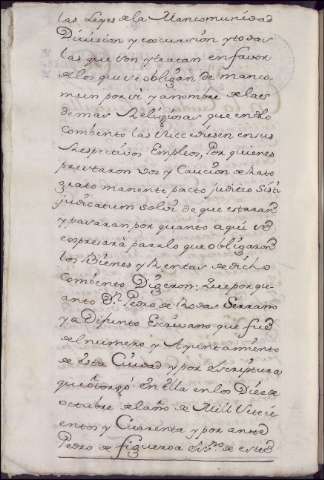 las Leyes de la Mancomunidad
Division y excursion y todas
las que son y tratan en favor
de los que se obligan de manco
mun por si y a nombre de las
demas Religiosas que en dho
Combento las subcediesen en sus
Respectivos Empleos, Por quienes
prestaron Voz y Caucion de Rato
grato manente pacto judicio Sisti
judicatum solvi de que estaran
y pasaran por quanto aqui se
expresará para lo que obligaron
los Bienes y Rentas de dicho
Combento Digeron: Que por qu
anto Dn. Pedro de Rodas Serrano
ya Difunto Escrivano que fué
de el numero y Ayuntamiento
de esta Ciudad y por escriptura
que otorgó en ella en los Diez de
octubre de el año de Mill Setesi
entos y Quarenta y por ante
Pedro de figueroa Essno. de este